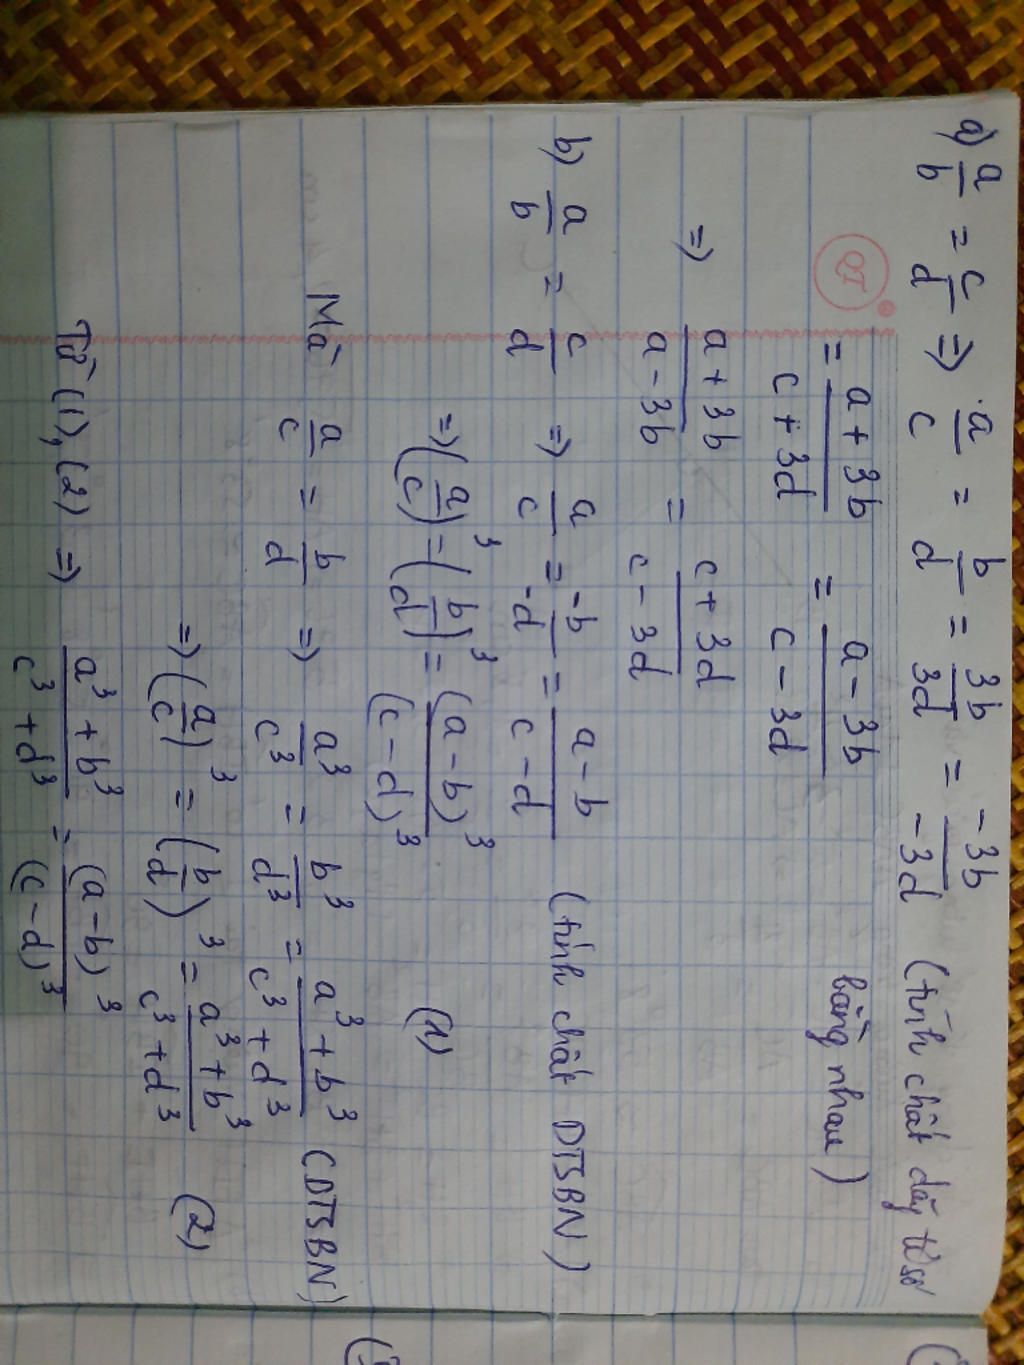 a) a/b = c/d => a/c = b/d = 3b/3d = -3b/-3d (tính chất dãy tỉ số
= (a + 3b)/(c + 3d) = (a - 3b)/(c - 3d) bằng nhau)
QT
=> (a + 3b)/(a - 3b) = (c + 3d)/(c - 3d)
b) a/b = c/d => a/c = -b/-d = (a - b)/(c - d) (tính chất DTSBN)
=> (a/c)³ = (b/d)³ = (a - b)³/(c - d)³ (1)
Mà a/c = b/d => a³/c³ = b³/d³ = (a³ + b³)/(c³ + d³) (DTSBN)
=> (a/c)³ = (b/d)³ = (a³ + b³)/(c³ + d³) (2)
Từ (1), (2) => (a³ + b³)/(c³ + d³) = (a - b)³/(c - d)³